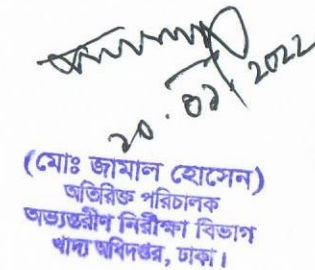 ২০.০২/২০২২
(মোঃ জামাল হোসেন)
অতিরিক্ত পরিচালক
অভ্যন্তরীণ নিরীক্ষা বিভাগ
খাদ্য অধিদপ্তর, ঢাকা।